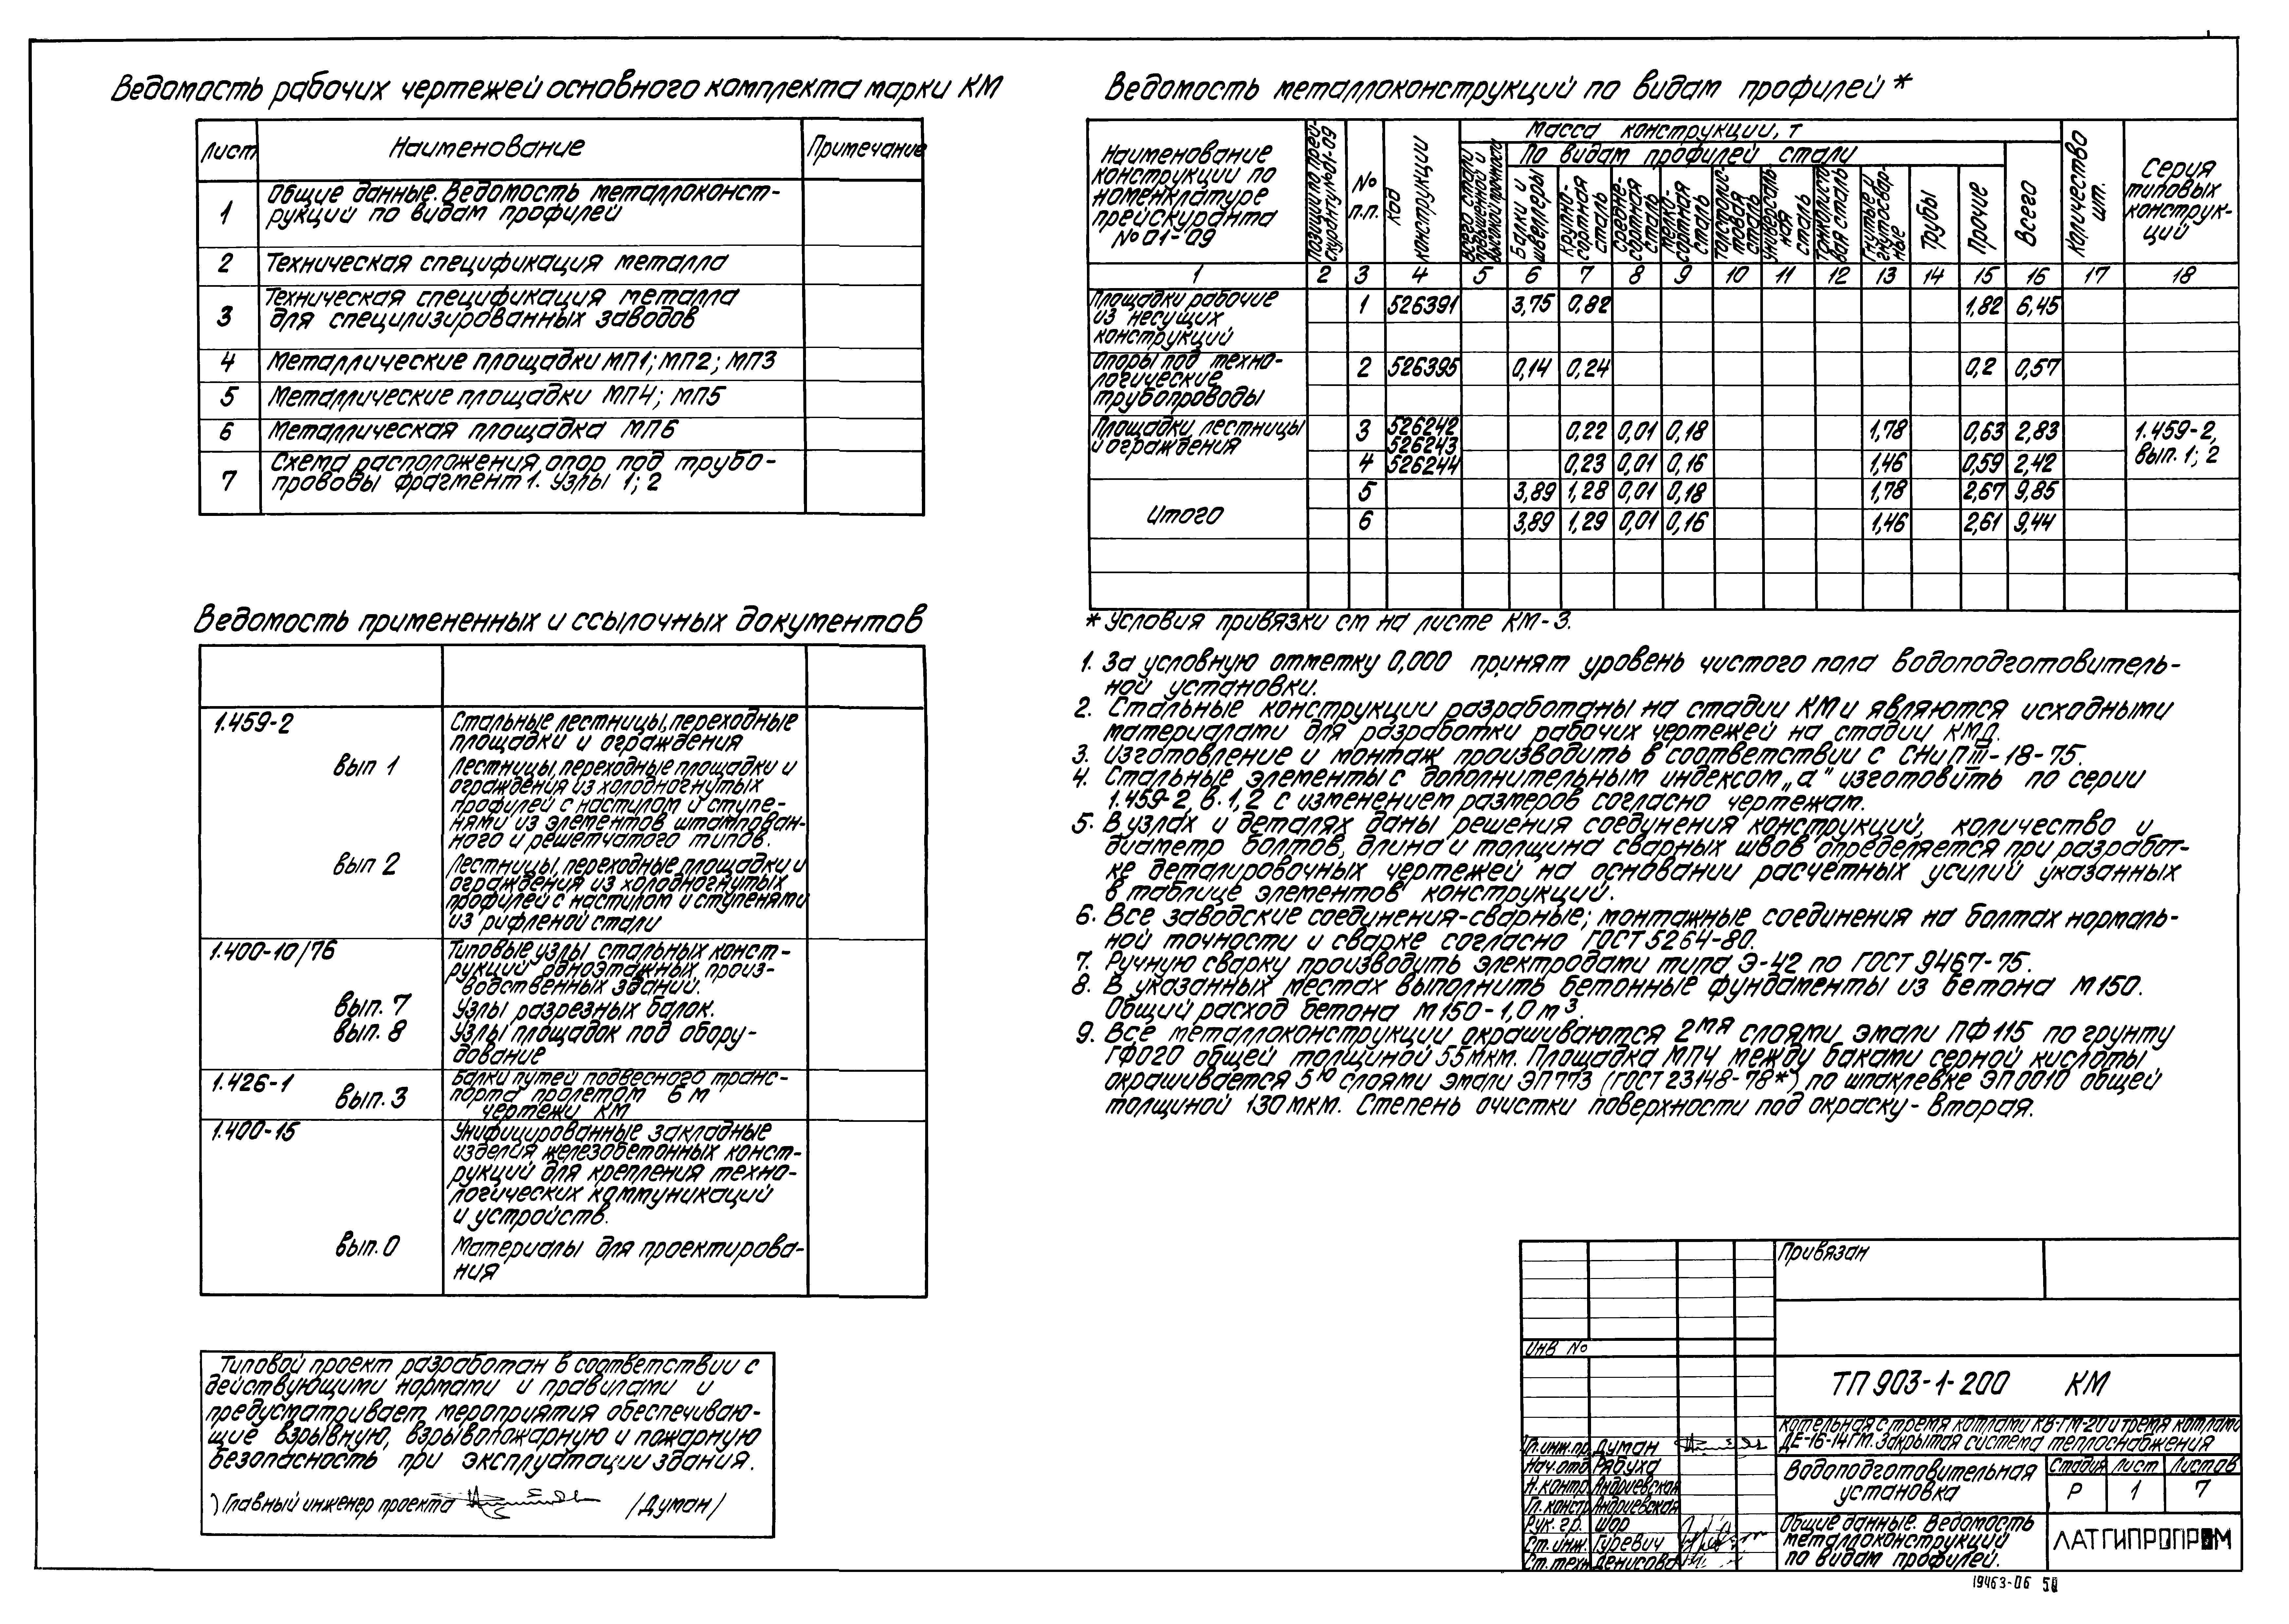 Ведомость рабочих чертежей основного комплекта марки КМ
Лист Наименование Примечание
1 Общие данные. Ведомость металлоконст-
рукций по видам профилей
2 Техническая спецификация металла
3 Техническая спецификация металла
для специлизированных заводов
4 Металлические площадки МП1; МП2; МП3
5 Металлические площадки МП4; МП5
6 Металлическая площадка МП6
7 Схема расположения опор под трубо-
проводы фрагмент 1. Узлы 1; 2
Ведомость примененных и ссылочных документов
1.459-2 Стальные лестницы, переходные
площадки и ограждения
вып 1 Лестницы, переходные площадки и
ограждения из холодногнутых
профилей с настилом и ступе-
нями из элементов штампован-
ного и решетчатого типов.
вып 2 Лестницы, переходные площадки и
ограждения из холодногнутых
профилей с настилом и ступенями
из рифленой стали
1.400-10/76 Типовые узлы стальных конст-
рукций одноэтажных произ-
водственных зданий.
вып. 7 Узлы разрезных балок.
вып. 8 Узлы площадок под обору-
дование
1.426-1 Балки путей подвесного транс-
вып. 3 порта пролетом 6 м
чертежи КМ
1.400-15 Унифицированные закладные
изделия железобетонных конст-
рукций для крепления техно-
логических коммуникаций
и устройств.
вып. 0 Материалы для проектирова-
ния
Типовой проект разработан в соответствии с
действующими нормами и правилами и
предусматривает мероприятия обеспечиваю-
щие взрывную, взрывопожарную и пожарную
безопасность при эксплуатации здания.
Главный инженер проекта /Думан/
Ведомость металлоконструкций по видам профилей *
Наименование
конструкции по
номенклатуре
прейскуранта
№ 01-09
Позиции по прей-
скуранту № 01-09
№
п.п.
Код
конструкции
Масса конструкции, т
Всего стали
повышенной и
высокой прочности
По видам профилей стали
Балки и
швеллеры
Крупно-
сортная
сталь
Средне-
сортная
сталь
Мелко-
сортная
сталь
Толстолис-
товая
сталь
Универсаль-
ная
сталь
Тонколисто-
вая сталь
Гнутые и
гнутосвар-
ные
Трубы
Прочие
Всего
Количество
шт.
Серия
типовых
конструк-
ций
1 2 3 4 5 6 7 8 9 10 11 12 13 14 15 16 17 18
Площадки рабочие
из несущих
конструкций
1 526391 3,75 0,82 1,82 6,45
Опоры под техно-
логические
трубопроводы
2 526395 0,14 0,24 0,2 0,57
Площадки, лестницы
и ограждения
3 526242 0,22 0,01 0,18 1,78 0,63 2,83 1.459-2,
526243
4 526244 0,23 0,01 0,16 1,46 0,59 2,42 вып. 1; 2
Итого
5 3,89 1,28 0,01 0,18 1,78 2,67 9,85
6 3,89 1,29 0,01 0,16 1,46 2,61 9,44
* Условия привязки см на листе КМ-3.
1. За условную отметку 0,000 принят уровень чистого пола водоподготовитель-
ной установки.
2. Стальные конструкции разработаны на стадии КМ и являются исходными
материалами для разработки рабочих чертежей на стадии КМД.
3. Изготовление и монтаж производить в соответствии с СНиП III-18-75.
4. Стальные элементы с дополнительным индексом „а" изготовить по серии
1.459-2, в. 1, 2 с изменением размеров согласно чертежам.
5. В узлах и деталях даны решения соединения конструкций, количество и
диаметр болтов, длина и толщина сварных швов определяется при разработ-
ке деталировочных чертежей на основании расчетных усилий указанных
в таблице элементов конструкций.
6. Все заводские соединения-сварные; монтажные соединения на болтах нормаль-
ной точности и сварке согласно ГОСТ 5264-80.
7. Ручную сварку производить электродами типа Э-42 по ГОСТ 9467-75.
8. В указанных местах выполнить бетонные фундаменты из бетона М150.
Общий расход бетона М150-1,0 м³.
9. Все металлоконструкции окрашиваются 2мя слоями эмали ПФ115 по грунту
ГФ020 общей толщиной 55 мкм. Площадка МП4 между баками серной кислоты
окрашивается 5ю слоями эмали ЭП773 (ГОСТ 23148-78*) по шпаклевке ЭП0010 общей
толщиной 130 мкм. Степень очистки поверхности под окраску-вторая.
Привязан
Инв №
ТП 903-1-200 КМ
Котельная с тремя котлами КВ-ГМ-20 и тремя котлами
ДЕ-16-14ГМ. Закрытая система теплоснабжения
Гл. инж. пр. Думан
Нач. отд Рябуха
Н. контр. Андриевская
Гл. констр. Андриевская
Рук. гр. Шор
Ст. инж. Гуревич
Ст. техн Денисова
Водоподготовительная
установка
Стадия Лист Листов
Р 1 7
Общие данные. Ведомость
металлоконструкций
по видам профилей.
ЛАТГИПРОПРОМ
19463-06 50